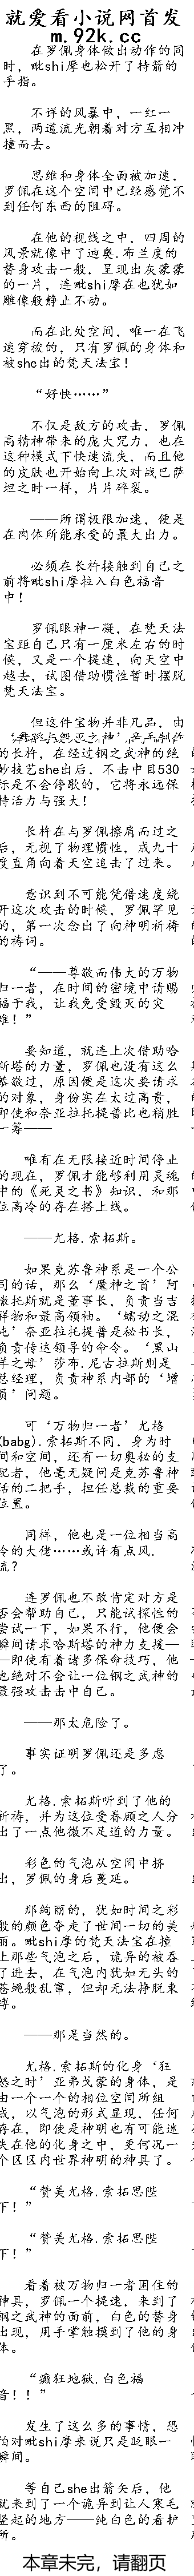 就爱看小说网首发
m.92k.cc
在罗佩身体做出动作的同
时，毗shi摩也松开了持箭的
手指。
不详的风暴中，一红一
黑，两道流光朝着对方互相冲
撞而去。
思维和身体全面被加速，
罗佩在这个空间中已经感觉不
到任何东西的阻碍。
在他的视线之中，四周的
风景就像中了迪奥.布兰度的
替身攻击一般，呈现出灰蒙蒙
的一片，连毗shi摩在也犹如
雕像般静止不动。
而在此处空间，唯一在飞
速穿梭的，只有罗佩的身体和
被she出的梵天法宝！
“好快……”
不仅是敌方的攻击，罗佩
高精神带来的庞大咒力，也在
这种模式下快速流失，而且他
的皮肤也开始向上次对战巴萨
坦之时一样，片片碎裂。
——所谓极限加速，便是
在肉体所能承受的最大出力。
必须在长杵接触到自己之
前将毗shi摩拉入白色福音
中！
罗佩眼神一凝，在梵天法
宝距自己只有一厘米左右的时
候，又是一个提速，向天空中
越去，试图借助惯性暂时摆脱
梵天法宝。
但这件宝物并非凡品，由
的长杵，在经过钢之武神的绝
妙技艺she出后，不击中目530
标是不会停歇的，它将永远保
持活力与强大！
长杵在与罗佩擦肩而过之
后，无视了物理惯性，成九十
度直角向着天空追击了过来。
意识到不可能凭借速度绕
开这次攻击的时候，罗佩罕见
的，第一次念出了向神明祈祷
的祷词。
“——尊敬而伟大的万物
归一者，在时间的密境中请赐
福于我，让我免受毁灭的灾
难！”
要知道，就连上次借助哈
斯塔的力量，罗佩也没有这么
恭敬过，原因便是这次要请求
的对象，身份实在太过高贵，
即使和奈亚拉托提普比也稍胜
一筹——
唯有在无限接近时间停止
的现在，罗佩才能够利用灵魂
中的《死灵之书》知识，和那
位高冷的存在搭上线。
——尤格.索拓斯。
如果克苏鲁神系是一个公
司的话，那么‘魔神之首’阿
撒托斯就是董事长，负责当吉
祥物和最高领袖。‘蠕动之混
沌’奈亚拉托提普是秘书长，
负责传达领导的命令。‘黑山
羊之母’莎布.尼古拉斯则是
总经理，负责神系内部的‘增
员’问题。
可‘万物归一者’尤格
(babg).索拓斯不同，身为时
间和空间，还有一切奥秘的支
配者，他毫无疑问是克苏鲁神
话的二把手，担任总裁的重要
位置。
同样，他也是一位相当高
冷的大佬……或许有点风.
流？
连罗佩也不敢肯定对方是
否会帮助自己，只能试探性的
尝试一下，如果不行，他便会
瞬间请求哈斯塔的神力支援—
—即使有着诸多保命技巧，他
也绝对不会让一位钢之武神的
最强攻击击中自己。
——那太危险了。
事实证明罗佩还是多虑
了。
尤格.索拓斯听到了他的
祈祷，并为这位受眷顾之人分
出了一点他微不足道的力量。
彩色的气泡从空间中挤
出，罗佩的身后蔓延。
那绚丽的，犹如时间之彩
般的颜色夺走了世间一切的美
丽。毗shi摩的梵天法宝在撞
上那些气泡之后，诡异的被吞
了进去，在气泡内犹如无头的
苍蝇般乱窜，但却无法挣脱束
缚。
——那是当然的。
尤格.索拓斯的化身‘狂
怒之时’亚弗戈蒙的身体，是
由一个一个的相位空间所组
成，以气泡的形式显现，任何
存在，即使是神明也有可能迷
失在他的化身之中，更何况一
个区区内世界神明的神具了。
“赞美尤格.索拓思陛
下！”
“赞美尤格.索拓思陛
下！”
看着被万物归一者困住的
神具，罗佩一个提速，来到了
钢之武神的面前，白色的替身
出现，用手掌触摸到了他的身
体。
“癫狂地狱.白色福
音！！”
发生了这么多的事情，恐
怕对毗shi摩来说只是眨眼一
瞬间。
等自己she出箭矢后，他
就来到了一个诡异到让人寒毛
竖起的地方——纯白色的看护
所。
本章未完，请翻页